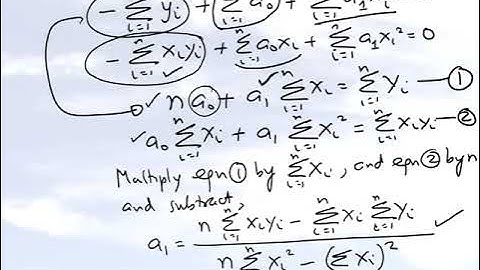 - Σ_{i=1} y_i + Σ_{i=1} a_0 + Σ_{i=1} a_1 x_i
- Σ_{i=1}^{n} x_i y_i + Σ_{i=1}^{n} a_0 x_i + Σ_{i=1}^{n} a_1 x_i^2 = 0
✓ n a_0 + a_1 Σ_{i=1}^{n} x_i = Σ_{i=1}^{n} y_i — ①
✓ a_0 Σ_{i=1}^{n} x_i + a_1 Σ_{i=1}^{n} x_i^2 = Σ_{i=1}^{n} x_i y_i — ②
Multiply eqn ① by Σ_{i=1}^{n} x_i, and eqn ② by n
and subtract,
a_1 = (n Σ_{i=1}^{n} x_i y_i - Σ_{i=1}^{n} x_i Σ_{i=1}^{n} y_i) / (n Σ x_i^2 - (Σ x_i)^2) ✓